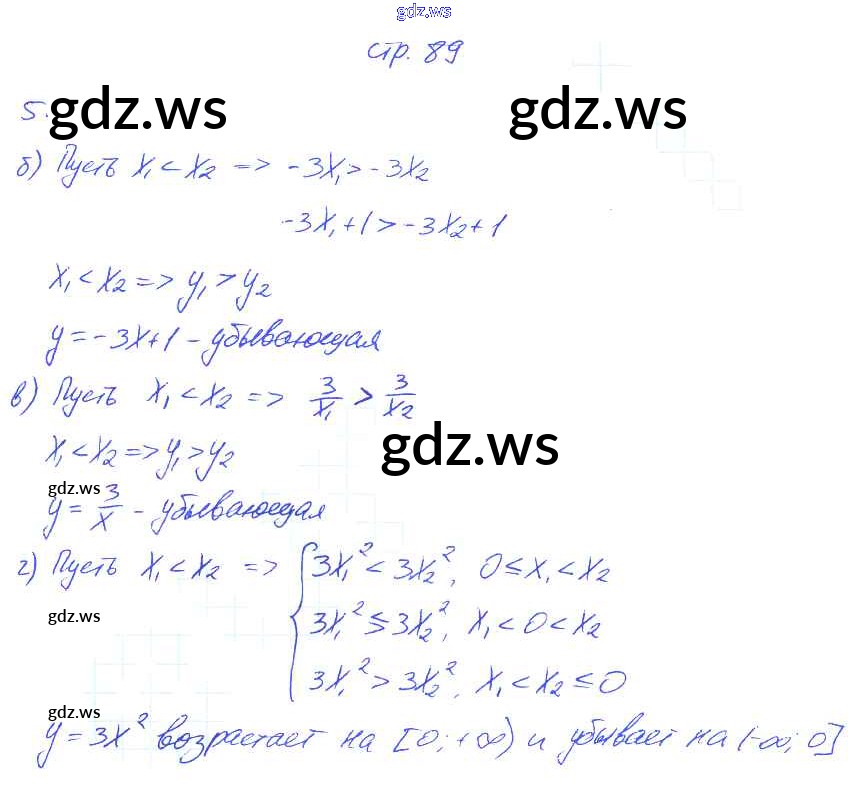 gdz.ws
стр. 89
5. gdz.ws gdz.ws
б) Пусть x₁ < x₂ => -3x₁ > -3x₂
-3x₁+1 > -3x₂+1
x₁ < x₂ => y₁ > y₂
y = -3x+1 - убывающая
в) Пусть x₁ < x₂ => 3/x₁ > 3/x₂
x₁ < x₂ => y₁ > y₂ gdz.ws
gdz.ws
y = 3/x - убывающая
г) Пусть x₁ < x₂ => { 3x₁² < 3x₂², 0 ≤ x₁ < x₂
gdz.ws
3x₁² ≤ 3x₂², x₁ < 0 < x₂
3x₁² > 3x₂², x₁ < x₂ ≤ 0
gdz.ws
y = 3x² возрастает на [0; +∞) и убывает на (-∞; 0]